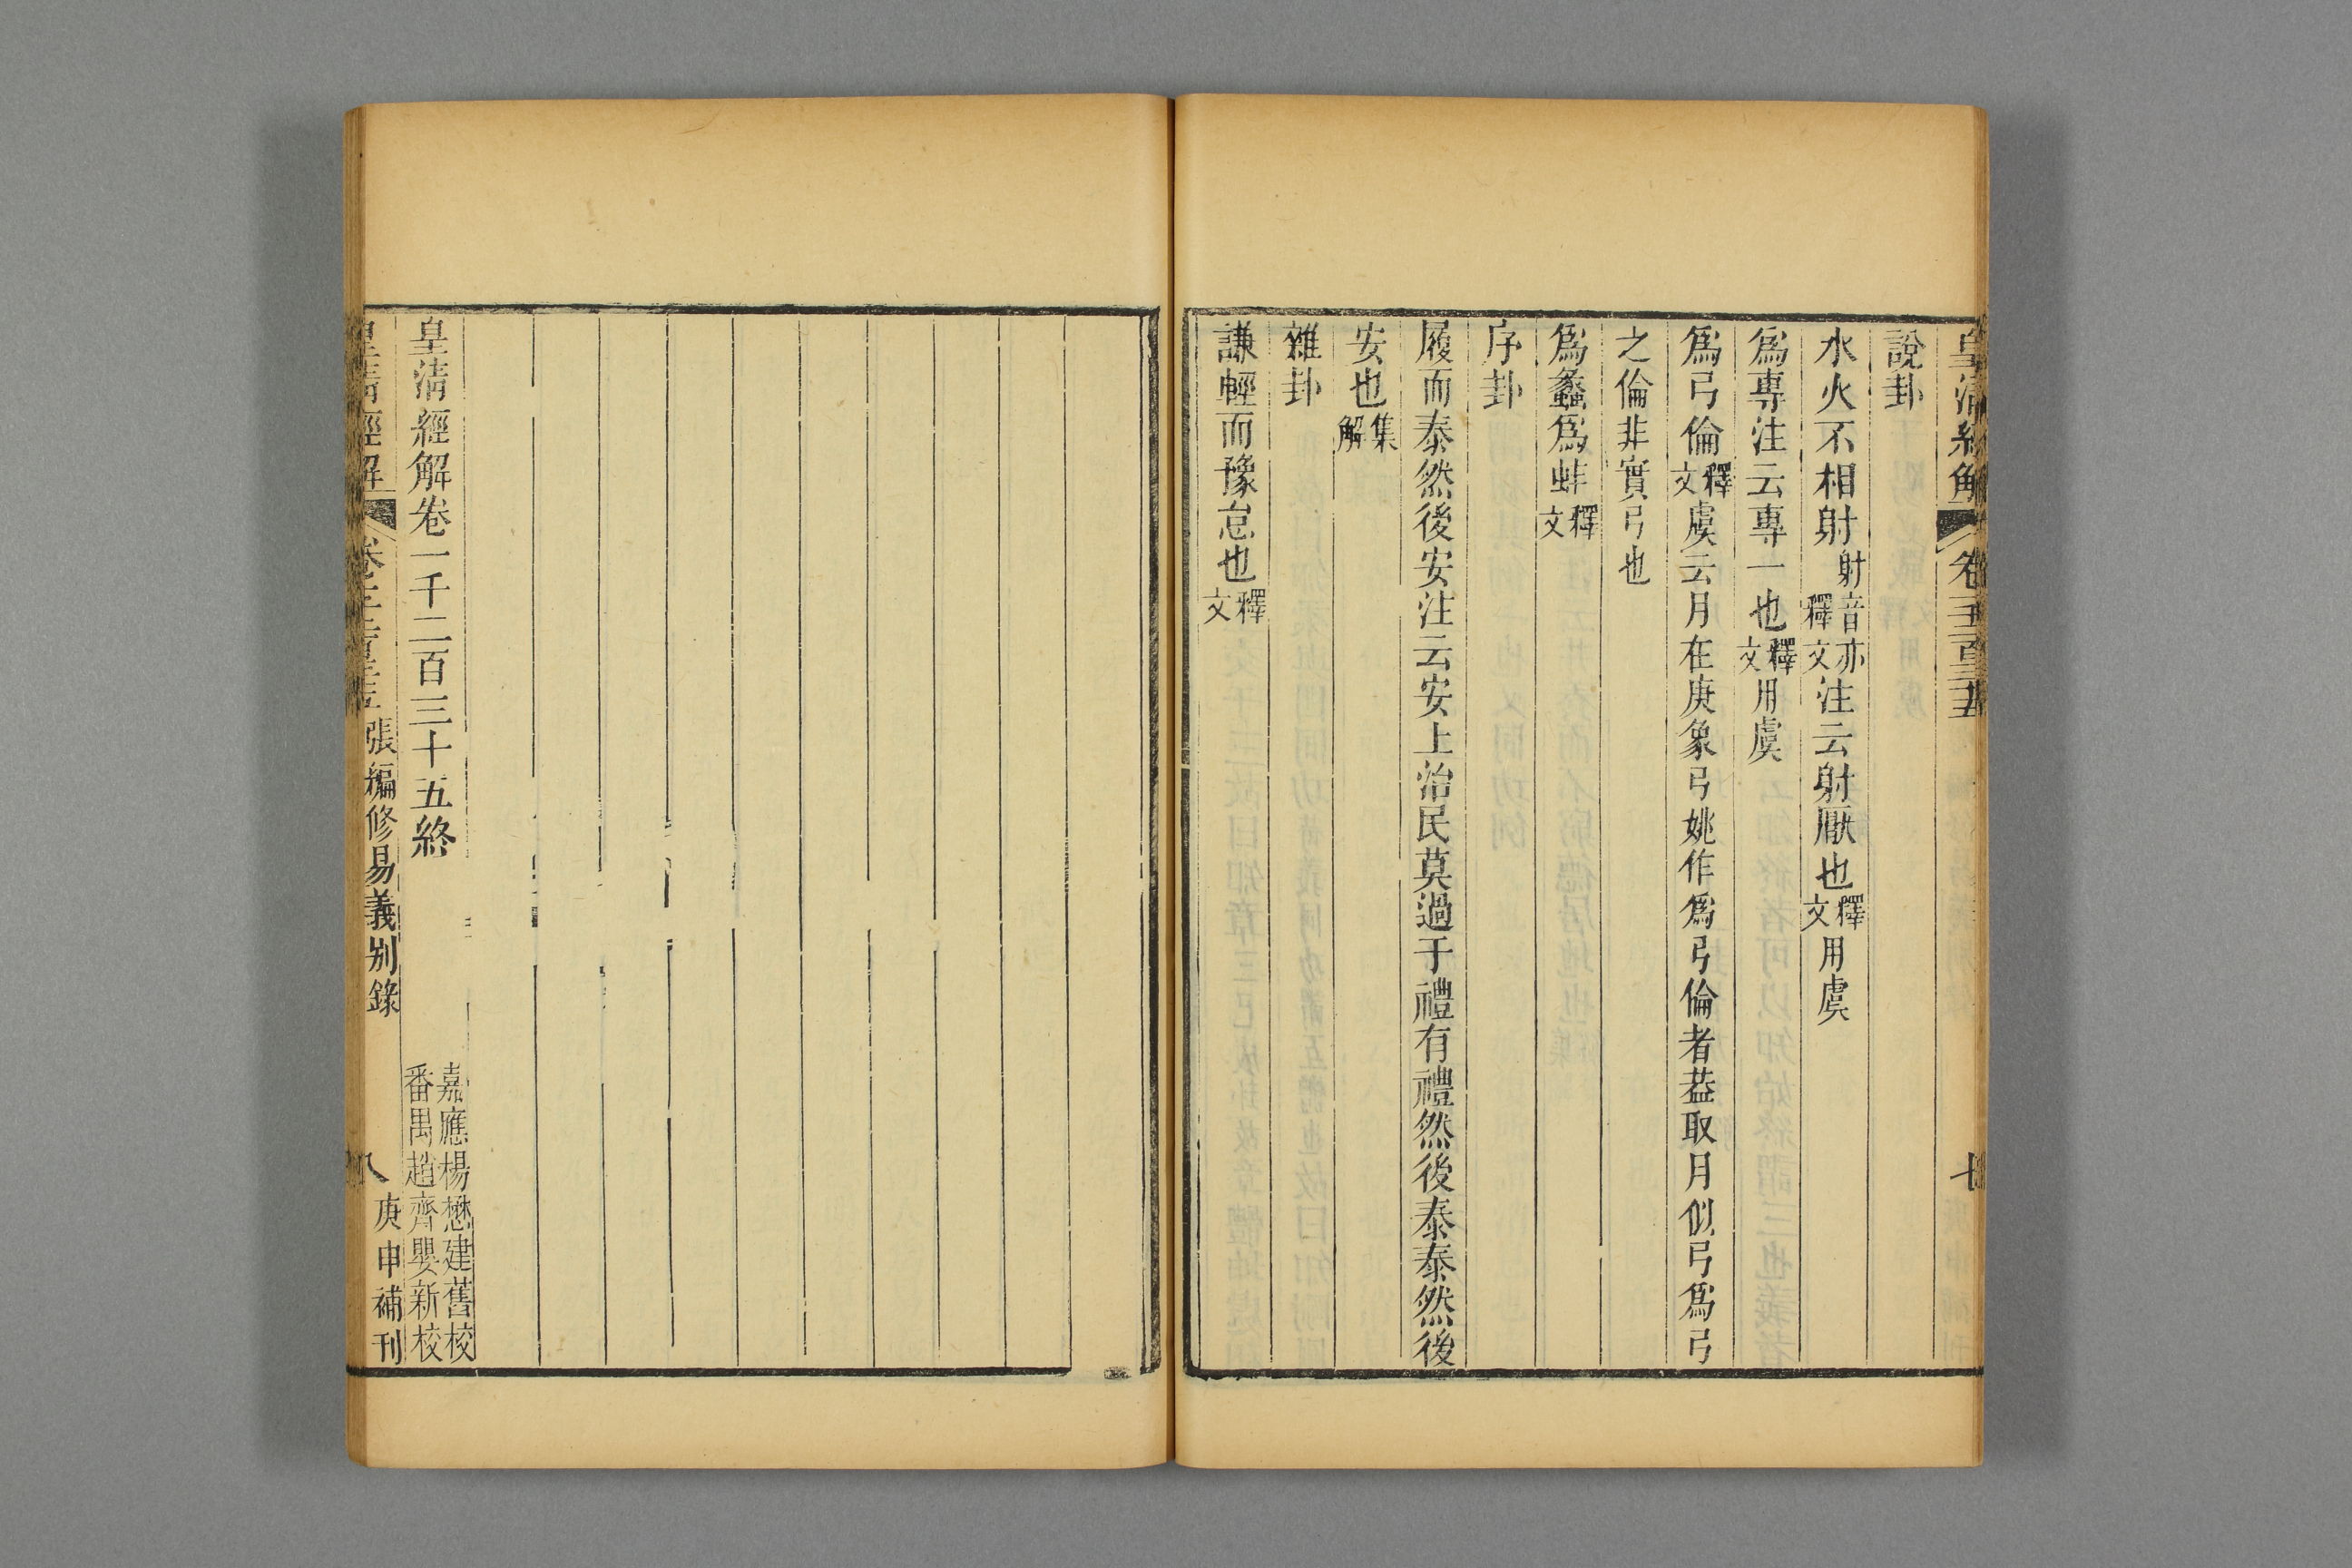 皇清經解 卷千二百三十五 七
說卦
水火不相射射音亦釋文注云射厭也釋文用虞
爲專注云專一也釋文用虞
爲弓倫釋文虞云月在庚象弓姚作爲弓倫者葢取月似弓爲弓
之倫非實弓也
爲蠡爲蚌釋文
序卦
履而泰然後安注云安上治民莫過于禮有禮然後泰泰然後
安也集解
雜卦
謙輕而豫怠也釋文
皇清經解卷一千二百三十五終
嘉應楊懋建舊校
番禺趙齊嬰新校
皇清經解 卷千二百三十五 張編修易義別錄 八 庚申補刊